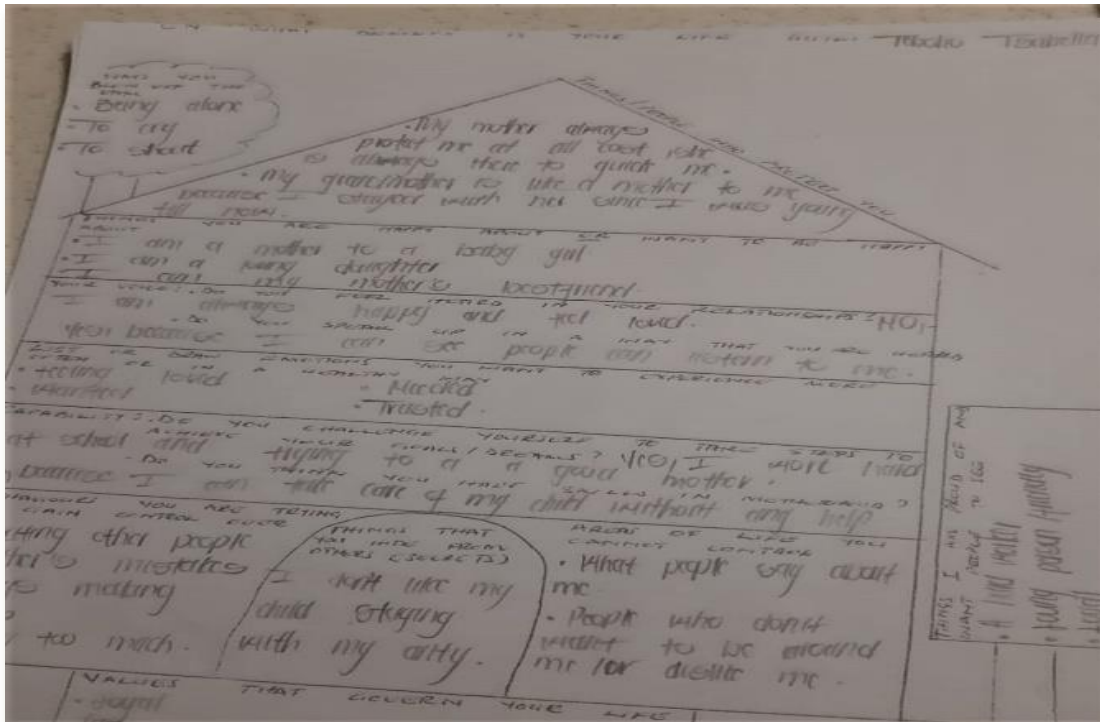 IS YOUR LIFE
WAYS YOU
· Being alone
- To cry
- To shout
THINGS/PEOPLE WHO PROTECT YOU
· My mother always
protect me at all cost
is always there to
· My grandmother is like a mother to me
because I stayed with her since I was young
till now.
THINGS YOU ARE HAPPY ABOUT OR WANT TO BE HAPPY
ABOUT
· I am a mother to a baby girl
· I am a loving daughter
I am my mother's bestfriend
YOUR VOICE: DO YOU FEEL IN YOUR RELATIONSHIPS? NO,
I am always happy and feel loved.
· DO YOU SPEAK UP IN A WAY THAT YOU ARE HEARD
Yes because I can see people can listen to me.
LIST OR DRAW EMOTIONS YOU WANT TO EXPERIENCE MORE
OFTEN OR IN A HEALTHY WAY
· feeling loved
· Needed
· Wanted
· Trusted.
CAPABILITY: DO YOU CHALLENGE YOURSELF TO TAKE STEPS TO
ACHIEVE YOUR GOALS/DREAMS? Yes, I work hard
at school and trying to a a good mother.
· DO YOU THINK YOU HAVE SKILLS IN MOTHERHOOD?
because I can take care of my child without any help
BEHAVIOURS YOU ARE TRYING
GAIN CONTROL OVER
other people
mistakes
making
too much.
THINGS THAT
YOU HIDE FROM
OTHERS (SECRETS)
I don't like my
child staying
with my anty.
AREAS OF LIFE YOU
CANNOT CONTROL
· What people say about
me
· People who don't
want to be around
me / or dislike me.
THINGS I AM PROUD OF AND
WANT PEOPLE TO SEE
· A hard worker
VALUES THAT GOVERN YOUR LIFE
- Loyal